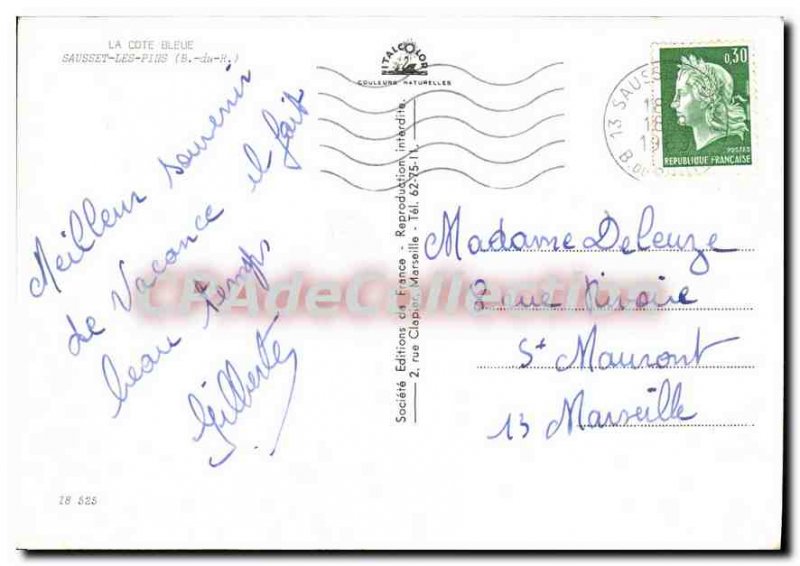 LA COTE BLEUE
SAUSSET-LES-PINS (B.-du-R.)
Meilleur souvenir
de Vacance il fait
beau temps
Gilberte
18 525
ITALCOLOR
COULEURS NATURELLES
Société Editions de France - Reproduction interdite.
2, rue Clapier, Marseille - Tél. 62-75-11.
13 SAUSSE
18
18
19
B. DU
0,30
POSTES
REPUBLIQUE FRANÇAISE
Madame Deleuze
2 rue Rivoire
St Mauront
13 Marseille
CPAdeCollection